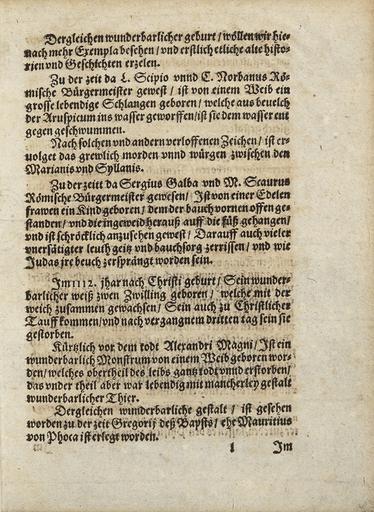 Dergleichen wunderbarlicher geburt / wöllen wir hie-
nach mehr Exempla besehen / vnd erstlich etliche alte histo-
rien vnd Geschichten erzelen.
Zu der zeit da L. Scipio vnnd C. Norbanus Rö-
mische Bürgermeister gewest / ist von einem Weib ein
grosse lebendige Schlangen geboren / welche aus beuelch
der Aruspicum ins wasser geworffen / ist sie dem wasser ent
gegen geschwummen.
Nach solchen vnd andern verloffenen Zeichen / ist er-
uolget das grewlich morden vnnd würgen zwischen den
Marianis vnd Syllanis.
Zu der zeitt da Sergius Galba vnd M. Scaurus
Römische Bürgermeister gewesen / Ist von einer Edelen
frawen ein Kind geboren / dem der bauch vornen offen ge-
standen / vnd die ingeweid herauß auff die füß gehangen /
vnd ist schröcklich anzusehen gewest / Darauff auch vieler
vnersätigter leuth geitz vnd bauchsorg zerrissen / vnd wie
Judas jre beuch zersprängt worden sein.
Im 1112. jhar nach Christi geburt / Sein wunder-
barlicher weiß zwen Zwilling geboren / welche mit der
weich zusammen gewachsen / Sein auch zu Christlicher
Tauff kommen / vnd nach vergangnem dritten tag sein sie
gestorben.
Kürtzlich vor dem todt Alexandri Magni / Ist ein
wunderbarlich Monstrum von einem Weib geboren wor-
den / welches obertheil des leibs gantz todt vnnd erstorben /
das vnder theil aber war lebendig mit mancherley gestalt
wunderbarlicher Thier.
Dergleichen wunderbarliche gestalt / ist gesehen
worden zu der zeit Gregorij deß Bapsts / ehe Mauritius
von Phoca ist erlegt worden.
1 Im